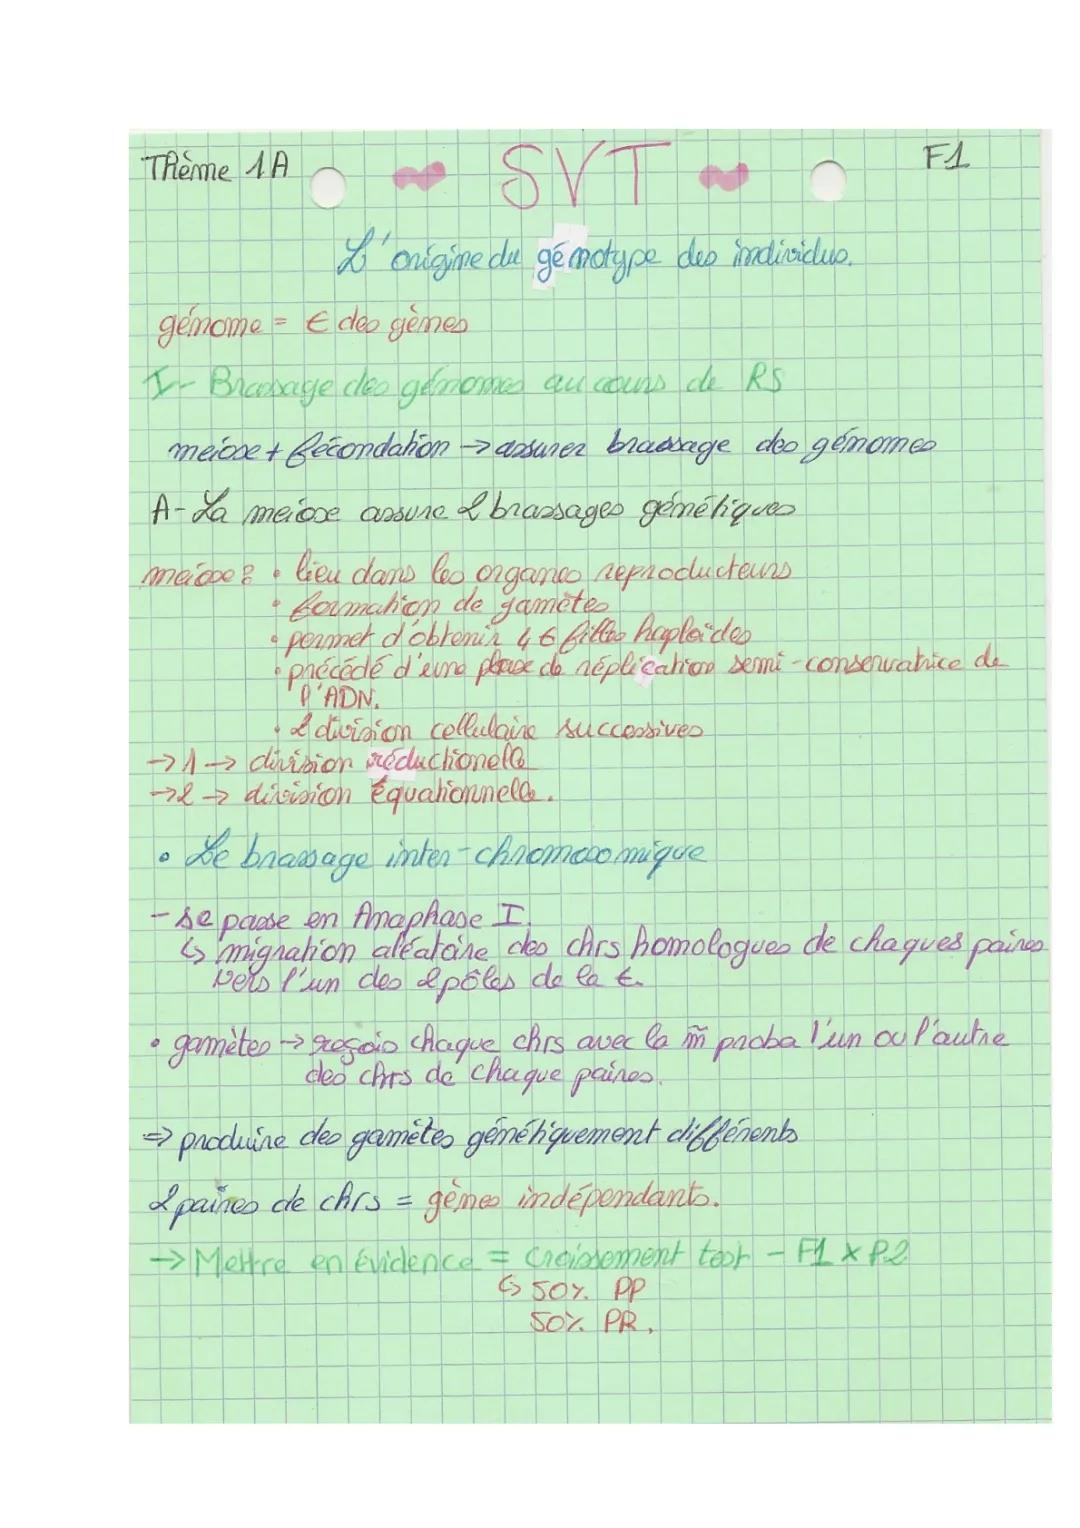 Thème 1A SVT F1
L'origine du génotype des individus.
génome = € des gènes
I- Brassage des génomes au cours de RS
meiose + fécondation → assurer brassage des génomes
A- La meiose assure 2 brassages génétiques
meiose : • lieu dans les organes reproducteurs
• formation de gamètes
• permet d'obtenir 4 € filles haploïdes
• précédé d'une phase de réplication semi-conservatrice de
l'ADN.
• 2 division cellulaire successives
→ 1 → division réductionelle
→ 2 → division équationnelle.
• Le brassage inter-chromosomique
- se passe en Anaphase I.
↳ migration aléatoire des chrs homologues de chaques paires
vers l'un des 2 pôles de la €.
• gamètes → reçois chaque chrs avec la m̃ proba l'un ou l'autre
des chrs de chaque paires.
⇒ produire des gamètes génétiquement différents
2 paires de chrs = gènes indépendants.
→ Mettre en évidence = Croissement test - F1 x P2
↳ 50% PP
50% PR.